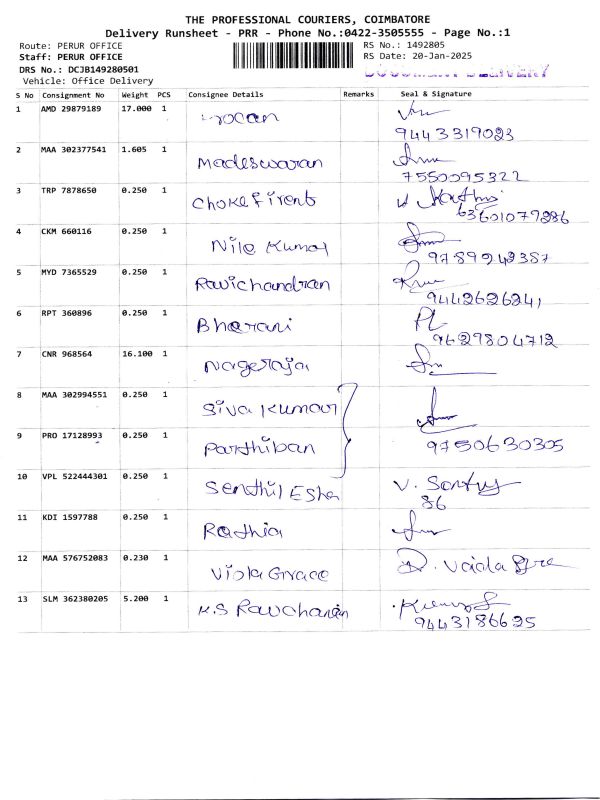 THE PROFESSIONAL COURIERS, COIMBATORE
Delivery Runsheet - PRR - Phone No.:0422-3505555 - Page No.:1
Route: PERUR OFFICE
RS No.: 1492805
Staff: PERUR OFFICE
RS Date: 20-Jan-2025
DRS No.: DCJB149280501
DOCUMENT DELIVERY
Vehicle: Office Delivery
S No Consignment No Weight PCS Consignee Details Remarks Seal & Signature
1 AMD 29879189 17.000 1
9443319023
2 MAA 302377541 1.605 1 Madeswaran
7550095322
3 TRP 7878650 0.250 1
63601079286
4 CKM 660116 0.250 1 Nile Kumar
9789942387
5 MYD 7365529 0.250 1 Ravichandran
9442626241
6 RPT 360896 0.250 1 Bharani
9629804712
7 CNR 968564 16.100 1 Nageraja
8 MAA 302994551 0.250 1 Siva Kumar
9 PRO 17128993 0.250 1 Parthiban
9750630305
10 VPL 522444301 0.250 1 Senthil
86
11 KDI 1597788 0.250 1 Rathia
12 MAA 576752083 0.230 1 Viola Grace
13 SLM 362380205 5.200 1 K.S
9443186625